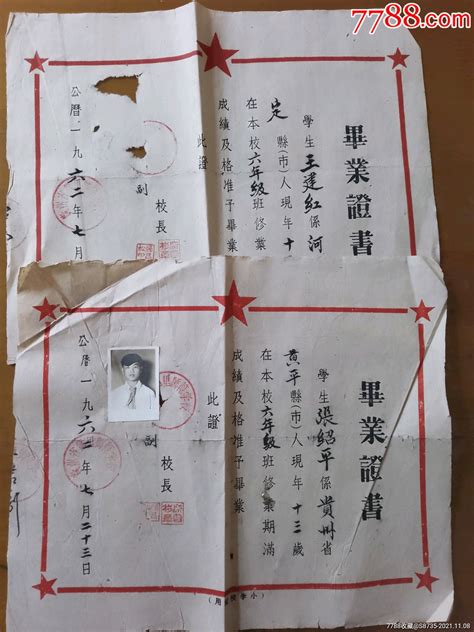 7788.com
畢業證書
學生王建紅係河
定縣(市)人現年十
在本校六年級班修業
成績及格准予畢業
此證
校長
副
公曆一九六二年七月
畢業證書
學生張紹平係貴州省
黄平縣(市)人現年十三歲
在本校六年級班修業期滿
成績及格准予畢業
此證
校長
副
公曆一九六二年七月二十三日
(小學校用)
7788收藏@S8735-2021.11.08